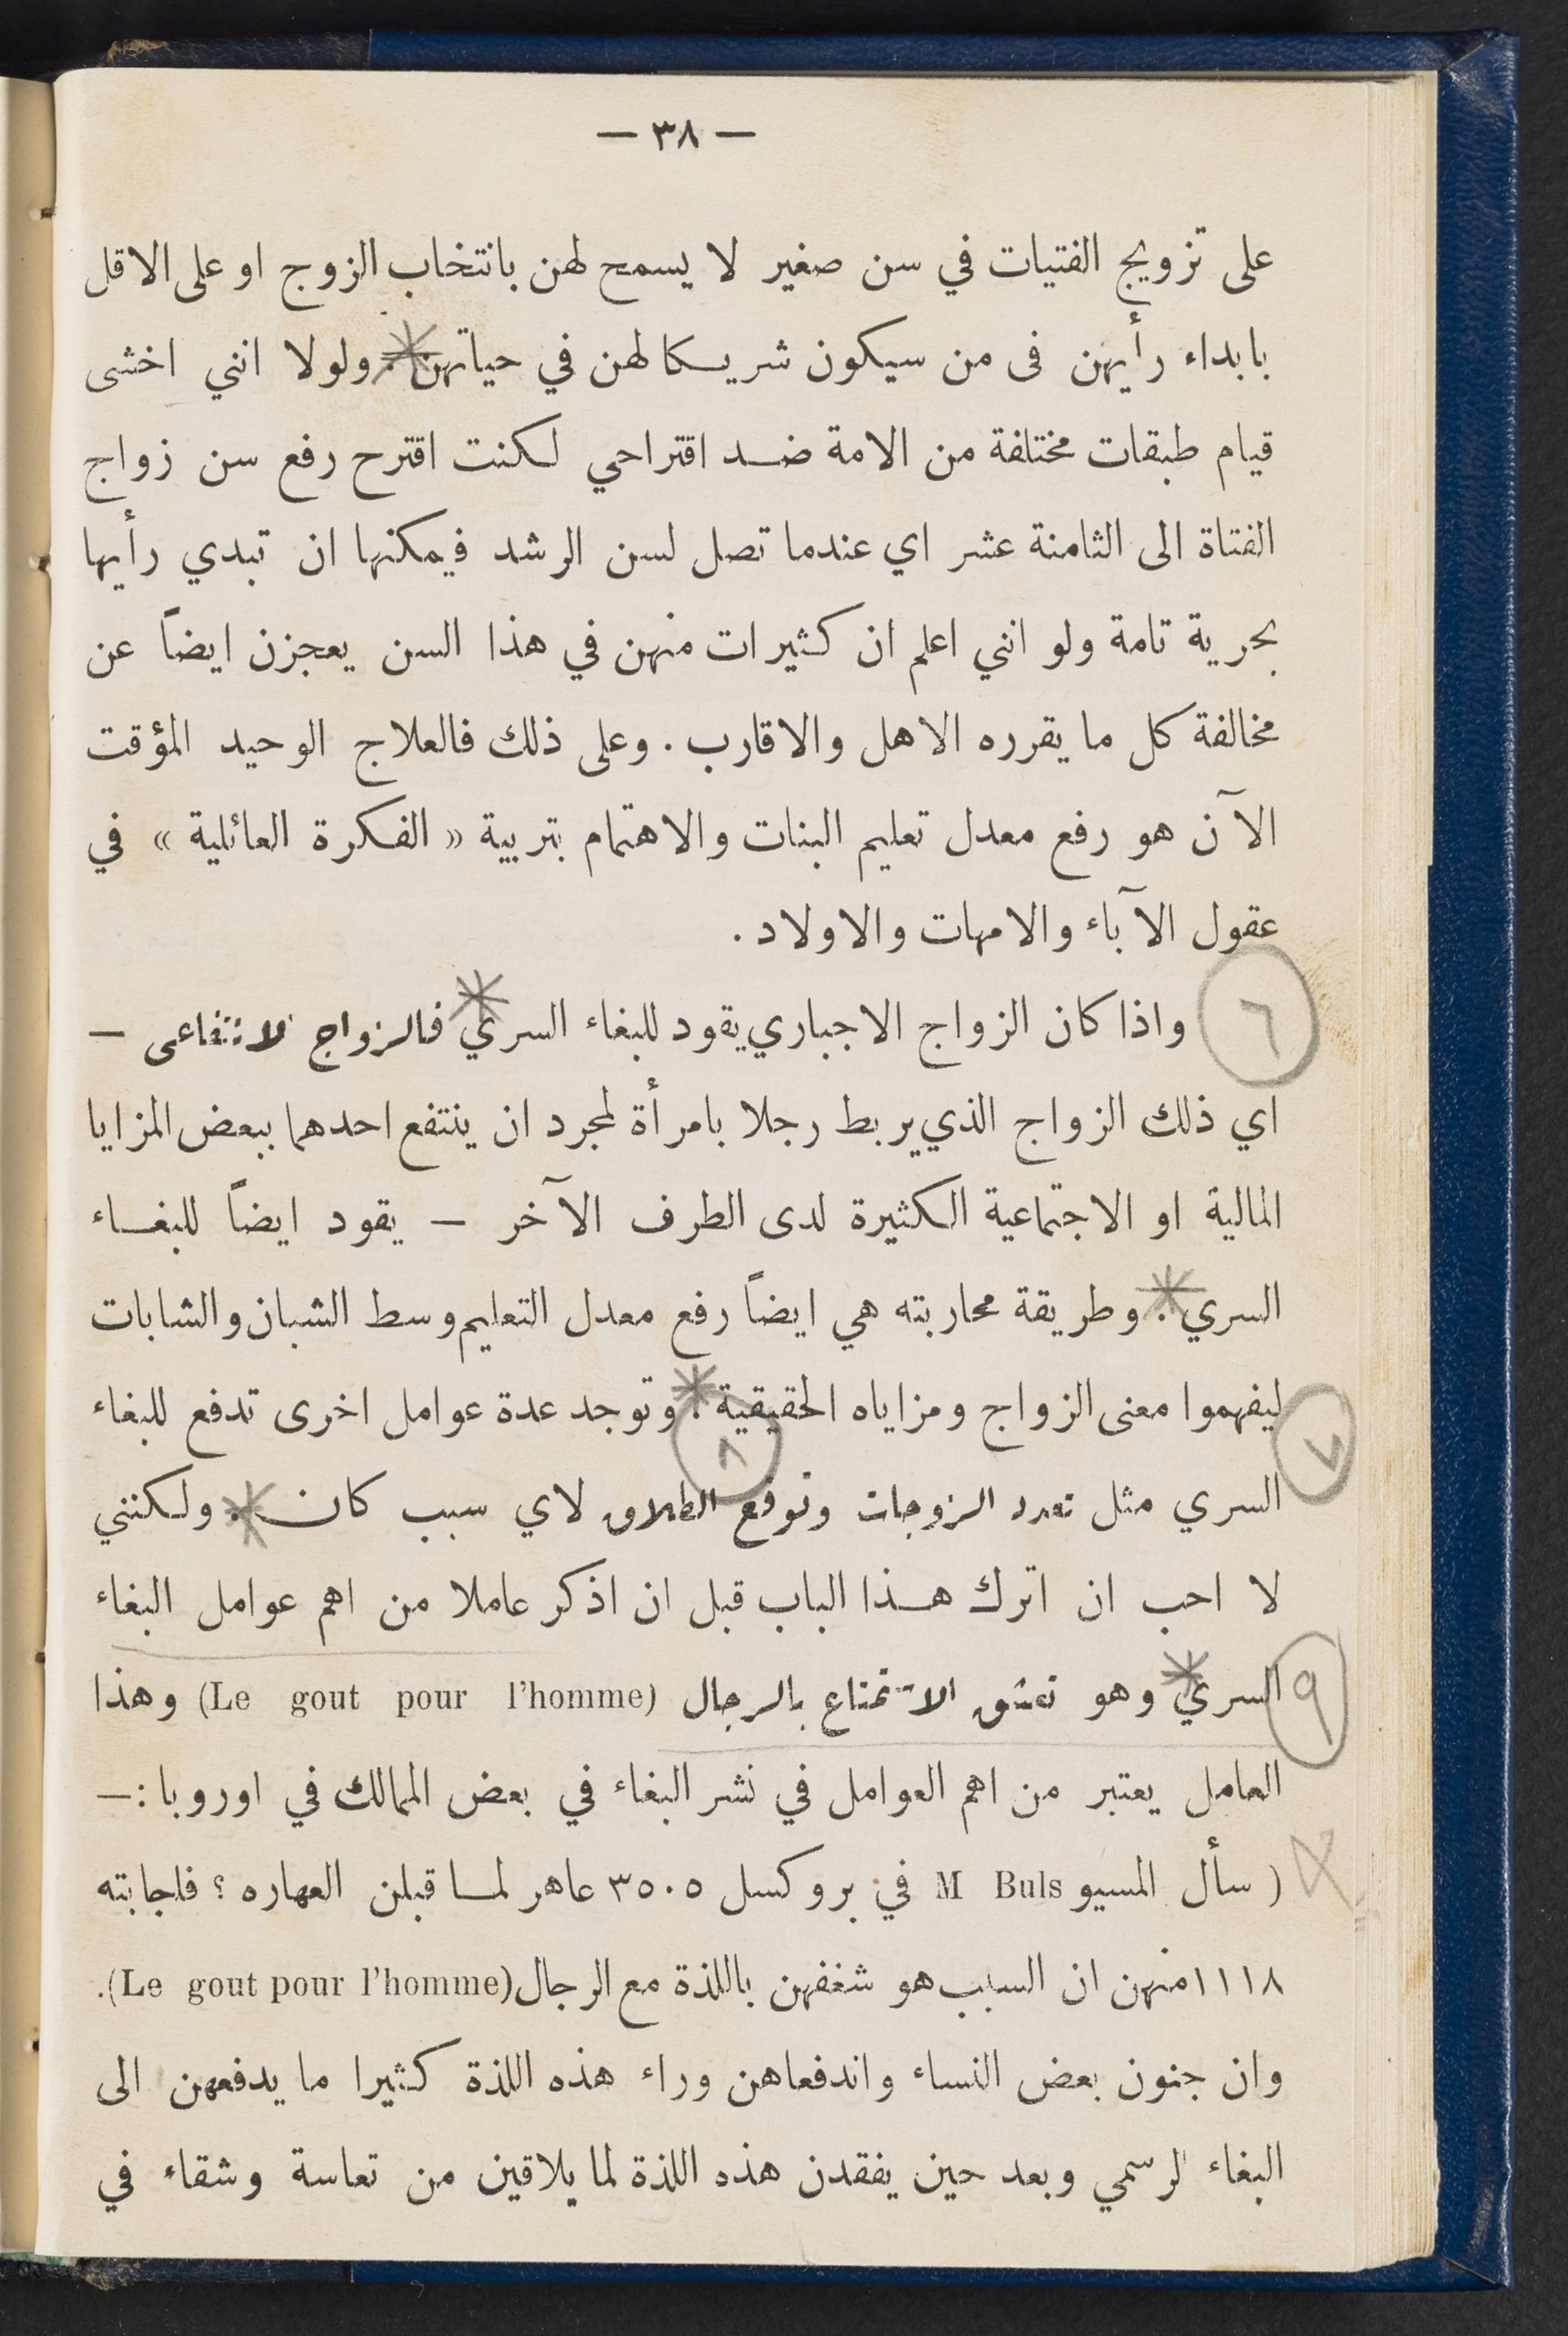 — ٣٨ —
على تزويج الفتيات في سن صغير لا يسمح لهن بانتخاب الزوج او على الاقل
بابداء رأيهن فى من سيكون شريكا لهن في حياتهن . ولولا انني اخشى
قيام طبقات مختلفة من الامة ضد اقتراحي لكنت اقترح رفع سن زواج
الفتاة الى الثامنة عشر اي عندما تصل لسن الرشد فيمكنها ان تبدي رأيها
بحرية تامة ولو انني اعلم ان كثيرات منهن في هذا السن يعجزن ايضاً عن
مخالفة كل ما يقرره الاهل والاقارب . وعلى ذلك فالعلاج الوحيد المؤقت
الآن هو رفع معدل تعليم البنات والاهتمام بتربية « الفكرة العائلية » في
عقول الآباء والامهات والاولاد .
٦ واذا كان الزواج الاجباري يقود للبغاء السري فالزواج الانتفاعى —
اي ذلك الزواج الذي يربط رجلا بامرأة لمجرد ان ينتفع احدهما ببعض المزايا
المالية او الاجتماعية الكثيرة لدى الطرف الآخر — يقود ايضاً للبغاء
السري . وطريقة محاربته هي ايضاً رفع معدل التعليم وسط الشبان والشابات
٧ ليفهموا معنى الزواج ومزاياه الحقيقية . وتوجد عدة عوامل اخرى تدفع للبغاء
٨
السري مثل تعدد الزوجات وتوقع الطلاق لاي سبب كان . ولكنني
لا احب ان اترك هذا الباب قبل ان اذكر عاملا من اهم عوامل البغاء
٩ السري وهو تعشق الاستمتاع بالرجال (Le gout pour l'homme) وهذا
العامل يعتبر من اهم العوامل في نشر البغاء في بعض الممالك في اوروبا :—
( سأل المسيو M Buls في بروكسل ٣٥٠٥ عاهر لما قبلن العهاره ؟ فاجابته
١١١٨ منهن ان السبب هو شغفهن باللذة مع الرجال (Le gout pour l'homme).
وان جنون بعض النساء واندفعاهن وراء هذه اللذة كثيرا ما يدفعهن الى
البغاء الرسمي وبعد حين يفقدن هذه اللذة لما يلاقين من تعاسة وشقاء في